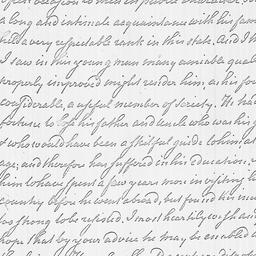 a long and intimate acquaintance with his fam
held a very respectable rank in this state. And I h
I saw in this young man many amiable quali
properly improved might render him, as his fou
considerable, a useful member of Society. He had
fortune to lose his father and uncle who was his g
& who would have been a skilful guide to him, at
age; and therefore has suffered in his Education.
him to have spent a few years more in visiting
country before he went abroad, but found his in
too strong to be resisted. I most heartily wish and
hope that by your advice he may be enabled